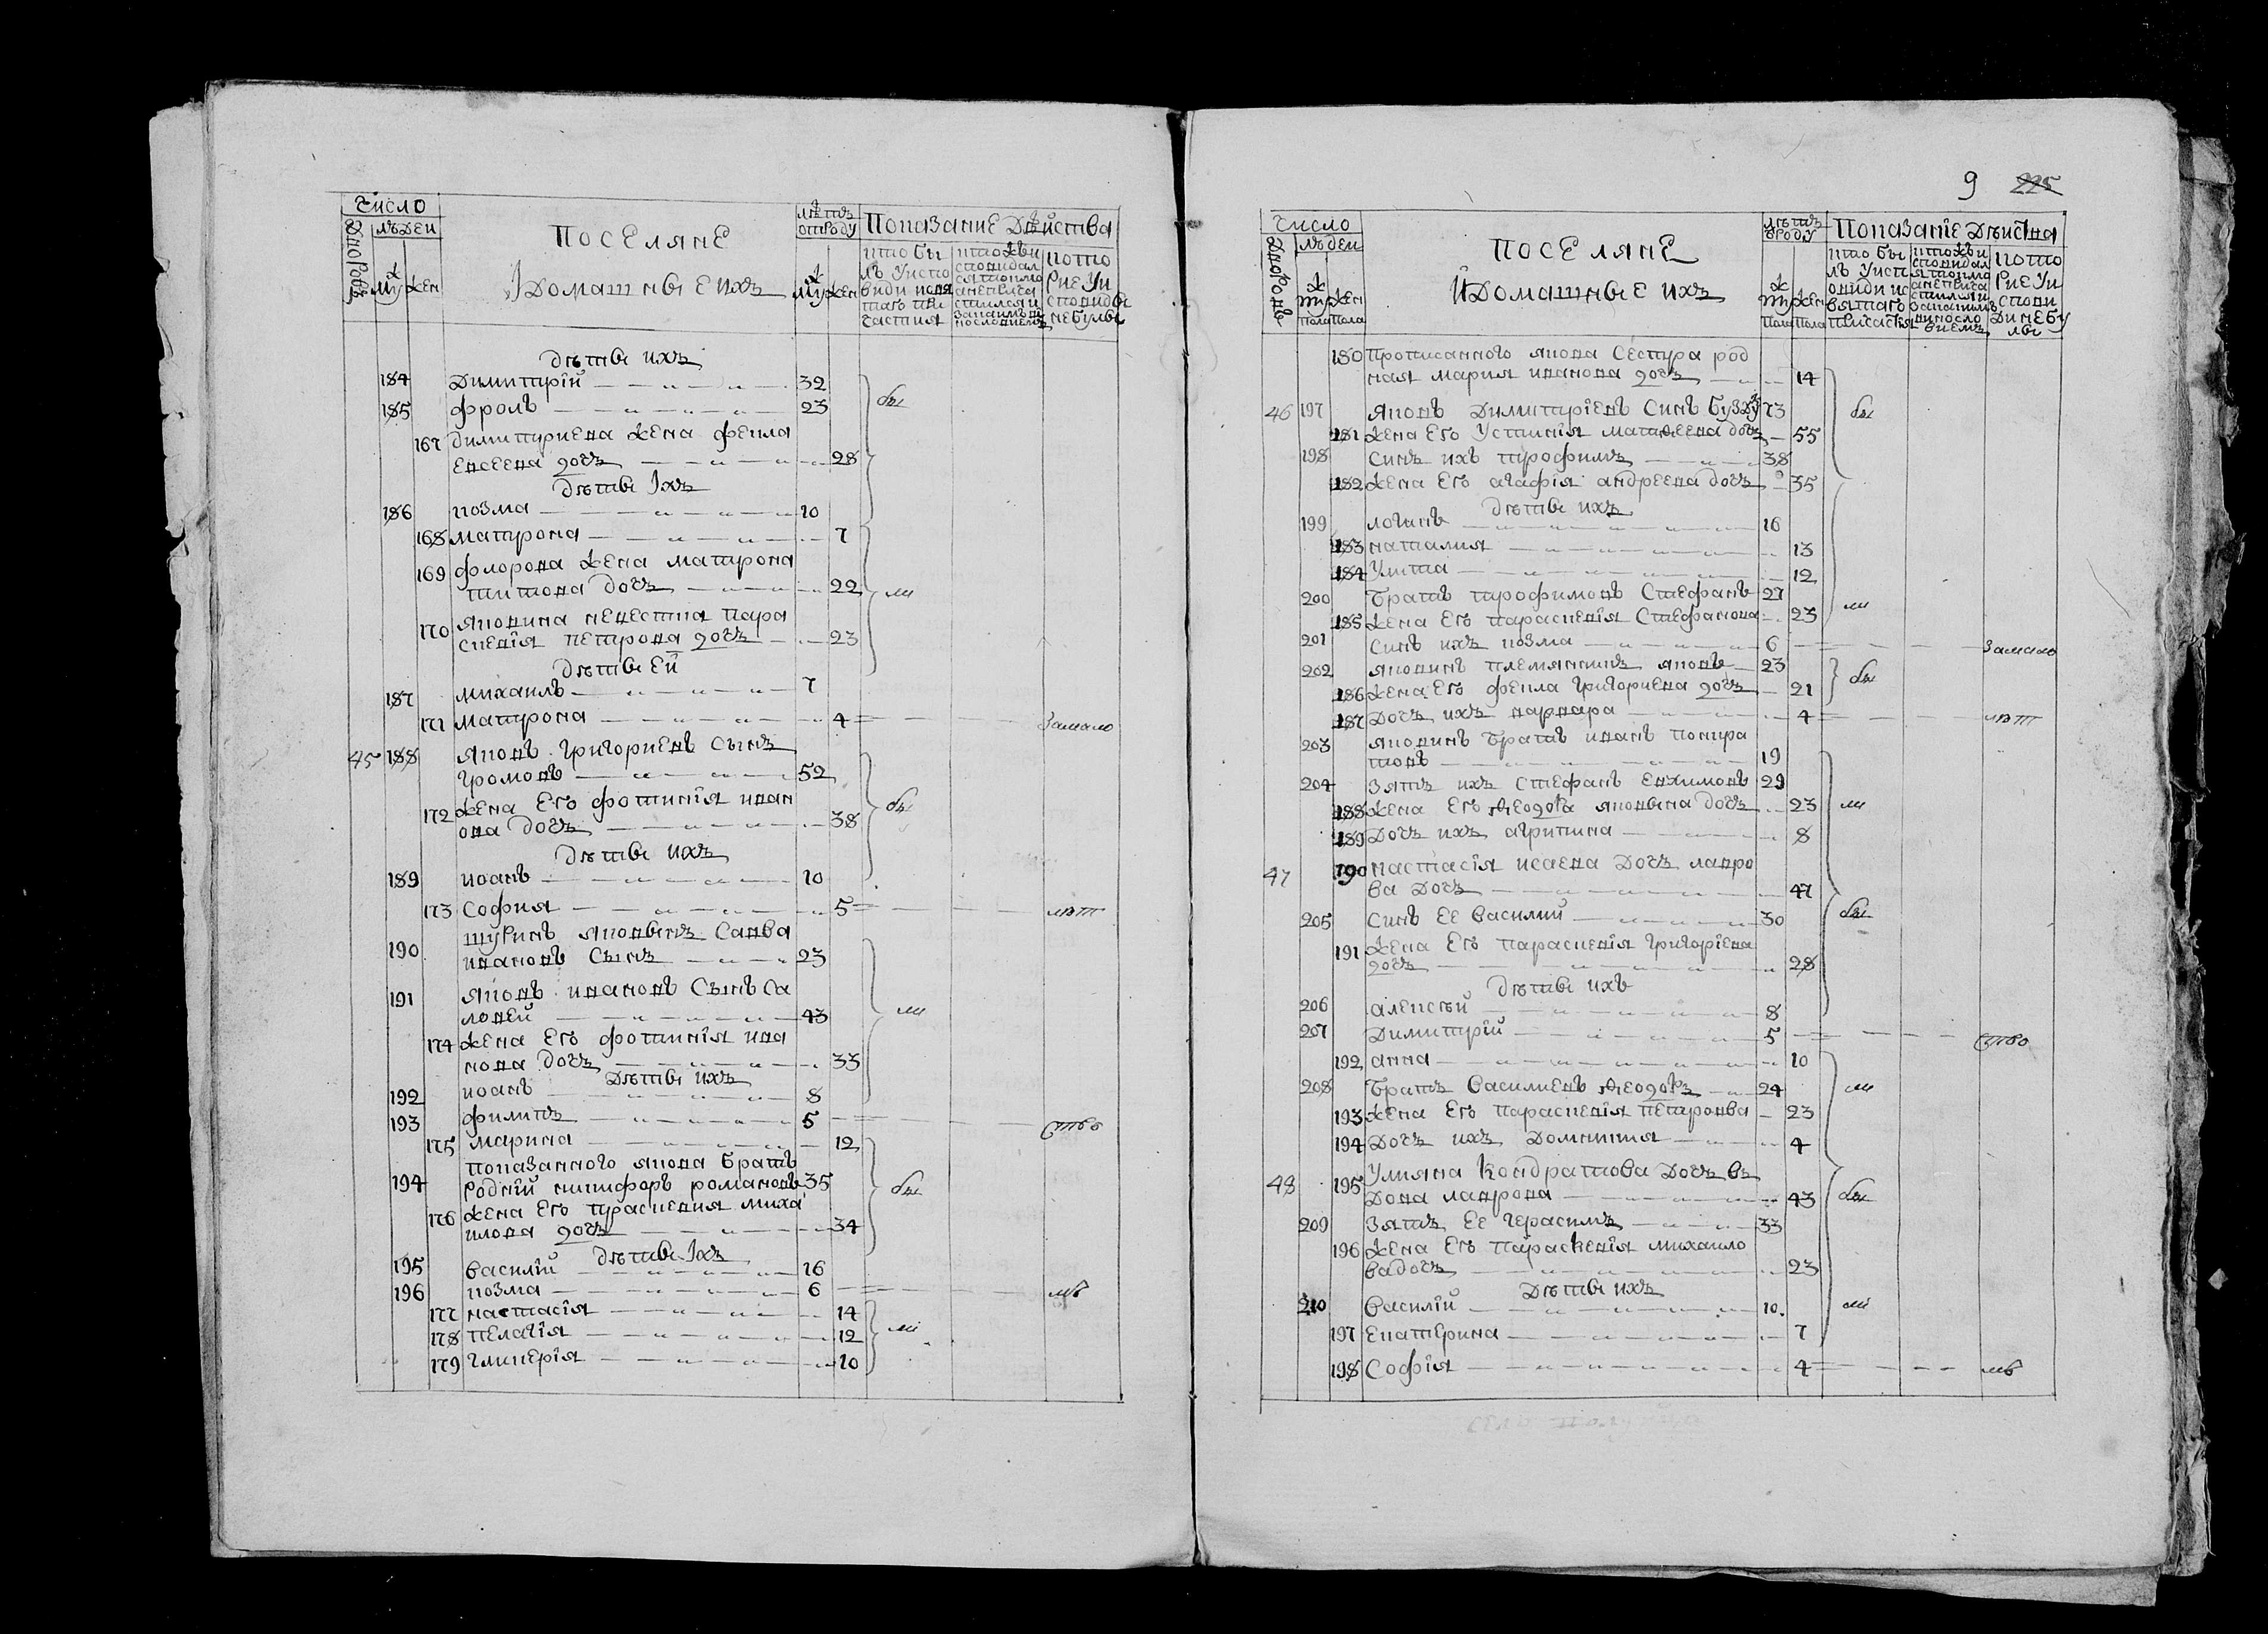 Число
Дворовъ
людеи
муж
жен
Поселяне
И Домашные ихъ
лѣтъ
отроду
муж
жен
Показание Дѣйства
кто бы
лъ Уиспо
вѣди исвя
таго при
частия
кто жъ и
споведал
ся токмо
а неприча
стился и
закаимъ ви
нословиемъ
кото
рие Уи
споведи
не булы
Дѣты ихъ
184 Димитрїй 32
185 фролъ 23 бы
167 Димитриева жена фекла
Евсеева дочъ 28
Дѣты Їхъ
186 козма 10
168 Матрона 7
169 флорова жена матрона
титова дочъ 22 ли
170 яковина невестка пара
скевїя петрова дочъ 23
Дѣты Ей
187 михаилъ 7
171 Матрона 4 Замало
45 188 яковъ григориевъ Сынъ
громовъ 52
172 жена Его фотинїя иван
ова дочъ 38 бы
Дѣты ихъ
189 иоанъ 10
173 София 5 лѣт
шуринъ яковынъ Савва
190 ивановъ Сынъ 23
191 яковъ ивановъ Сынъ Са
ловей 43 ли
174 жена Его фотинїя ива
нова дочъ 33
Дѣты ихъ
192 иоанъ 8
193 филипъ 5 ство
175 марина 12
показанного якова братъ
194 родний никифоръ романовъ 35 бы
176 жена Его праскевия миха
илова дочъ 34
Дѣты Їхъ
195 василїй 16
196 козма 6 лѣ
177 настасїя 14
178 пелагїя 12 ли
179 гликерїя 10
9 225
Число
Дворовъ
людеи
муж
пола
жен
пола
Поселяне
И Домашные ихъ
лѣтъ
ѿроду
муж
пола
жен
пола
Показанїе Дѣиства
кто бы
лъ Уисп
овиди ис
вятаго
причастия
кто жъ и
споведал
ся токмо
а непричa
стился и
закаимъ
винносло
виемъ
кото
рие Уи
спови
ди небу
лы
180 прописанного якова Сестура род
ная Мария иванова дочъ 14
46 197 яковъ Димитрїевъ Синъ бузду 73 бы
181 жена Его Устинїя матвеева дочъ 55
198 Синъ ихъ трофимъ 38
182 жена Его агафїя андреева дочъ 35
Дѣты ихъ
199 логинъ 16
183 наталия 13
184 Улита 12
200 братъ трофимовъ Стефанъ 27
185 жена Его параскевїя Стефанова 23 ли
201 Синъ ихъ козма 6 Замало
202 яковинъ племянникъ яковъ 23
186 жена Его фекла григориева дочъ 21 бы
187 Дочъ ихъ варвара 4 лѣт
203 яковинъ братъ иванъ кондра
товъ 19
204 Зятъ ихъ Стефанъ Евхимовъ 29
188 жена Его Ѳеодора яковына дочъ 23 ли
189 Дочъ ихъ агрипина 8
47 190 настасїя исаева Дочъ лавро
ва Дочъ 47
205 Синъ Ее василий 30 бы
191 жена Его параскевїя григорїева
дочъ 28
Дѣты ихъ
206 алексѣй 8
207 Димитрїй 5 ство
192 анна 10
208 братъ василиевъ Ѳеодоръ 24 ли
193 жена Его параскевїя петровва 23
194 Дочъ ихъ Домникия 4
48 195 Улияна кондратова Дочъ въ
Дова лаврова 43 бы
209 Зятъ Ее герасимъ 33
196 жена Его параскевїя михаило
ва дочъ 23
Дѣты ихъ
210 василїй 10 ли
197 Екатерина 7
198 Софїя 4 лѣ